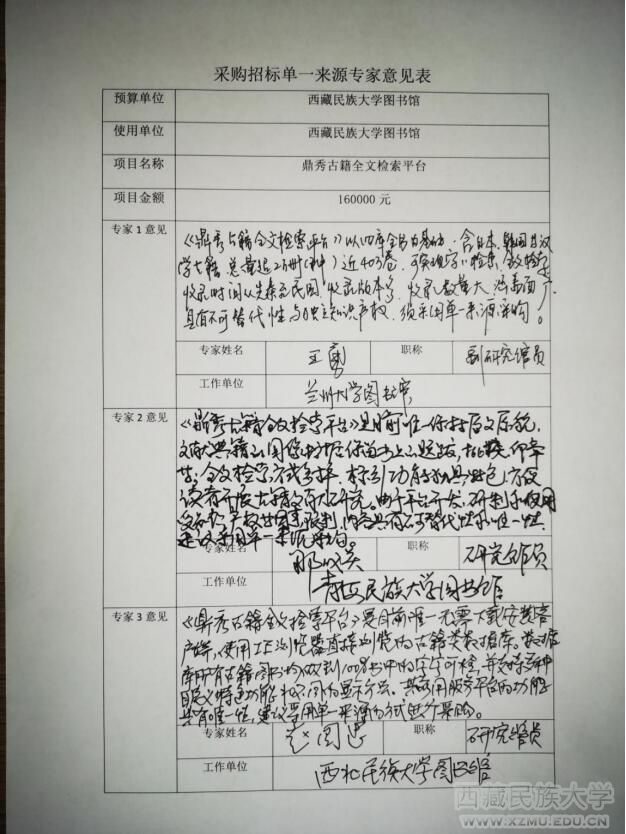 采购招标单一来源专家意见表
预算单位 西藏民族大学图书馆
使用单位 西藏民族大学图书馆
项目名称 鼎秀古籍全文检索平台
项目金额 160000 元
专家 1 意见 《鼎秀古籍全文检索平台》以四库全书为基础，含日本、韩国等汉
学古籍，总量超 万册（种）近40万卷，可实现字 检索、全文检索
收录时间从先秦至民国，收录版本多，收录数量大，涵盖面广
具有不可替代性与独立知识产权，须采用单一来源采购。
专家姓名 王 职称 副研究馆员
工作单位 兰州大学图书馆
专家 2 意见 《鼎秀古籍全文检索平台》是目前唯一保持原文原貌，
文献典籍以图像 保留 批校题跋， 印章
等。全文检索方式多样，标引功能 方便
读者开展古籍文献研究。由于平台开发、研制和使用
内容具有不可替代性和唯一性，
建议采用单一来源采购。
专家姓名 职称 研究馆员
工作单位 青海民族大学图书馆
专家 3 意见 《鼎秀古籍全文检索平台》是目前唯一无需下载安装客
户端，使用IE浏览器直接浏览的古籍类数据库。数据
库所有古籍图书均做到100%书中的字字可检，并支持多种
自定义 功能 不同的显示 。 应用服务平台的功能
具有唯一性，建议采用单一来源的方式进行采购。
专家姓名 职称 研究馆员
工作单位 西北民族大学图书馆
西藏民族大学
WWW.XZMU.EDU.CN